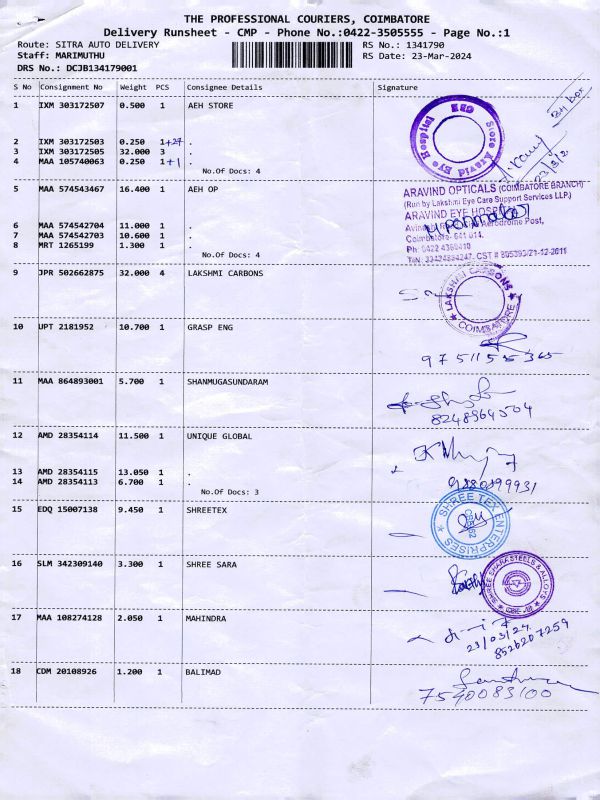 THE PROFESSIONAL COURIERS, COIMBATORE
Delivery Runsheet - CMP - Phone No.:0422-3505555 - Page No.:1
Route: SITRA AUTO DELIVERY RS No.: 1341790
Staff: MARIMUTHU RS Date: 23-Mar-2024
DRS No.: DCJB134179001
S No Consignment No Weight PCS Consignee Details Signature
1 IXM 303172507 0.500 1 AEH STORE
2 IXM 303172503 0.250 1+27 .
3 IXM 303172505 32.000 3 .
4 MAA 105740063 0.250 1+1 .
No.Of Docs: 4
Store Aravid Eye Hospital
5 MAA 574543467 16.400 1 AEH OP
6 MAA 574542704 11.000 1 .
7 MAA 574542703 10.600 1 .
8 MRT 1265199 1.300 1 .
No.Of Docs: 4
ARAVIND OPTICALS (COIMBATORE BRANCH)
(Run by Lakshmi Eye Care Support Services LLP.)
ARAVIND EYE HOSPITAL
Aerodrome Post,
Coimbatore- 641 014.
Ph: 0422 4360410
9 JPR 502662875 32.000 4 LAKSHMI CARBONS
LAKSHMI CARBONS
COIMBATORE
10 UPT 2181952 10.700 1 GRASP ENG
11 MAA 864893001 5.700 1 SHANMUGASUNDARAM
8248964504
12 AMD 28354114 11.500 1 UNIQUE GLOBAL
13 AMD 28354115 13.050 1 .
14 AMD 28354113 6.700 1 .
No.Of Docs: 3
15 EDQ 15007138 9.450 1 SHREETEX
SHREE TEX ENTERPRISES
16 SLM 342309140 3.300 1 SHREE SARA
SHREE SHARA STEELS & ALLOYS
17 MAA 108274128 2.050 1 MAHINDRA
23/03/24
8526207259
18 CDM 20108926 1.200 1 BALIMAD
7540083100